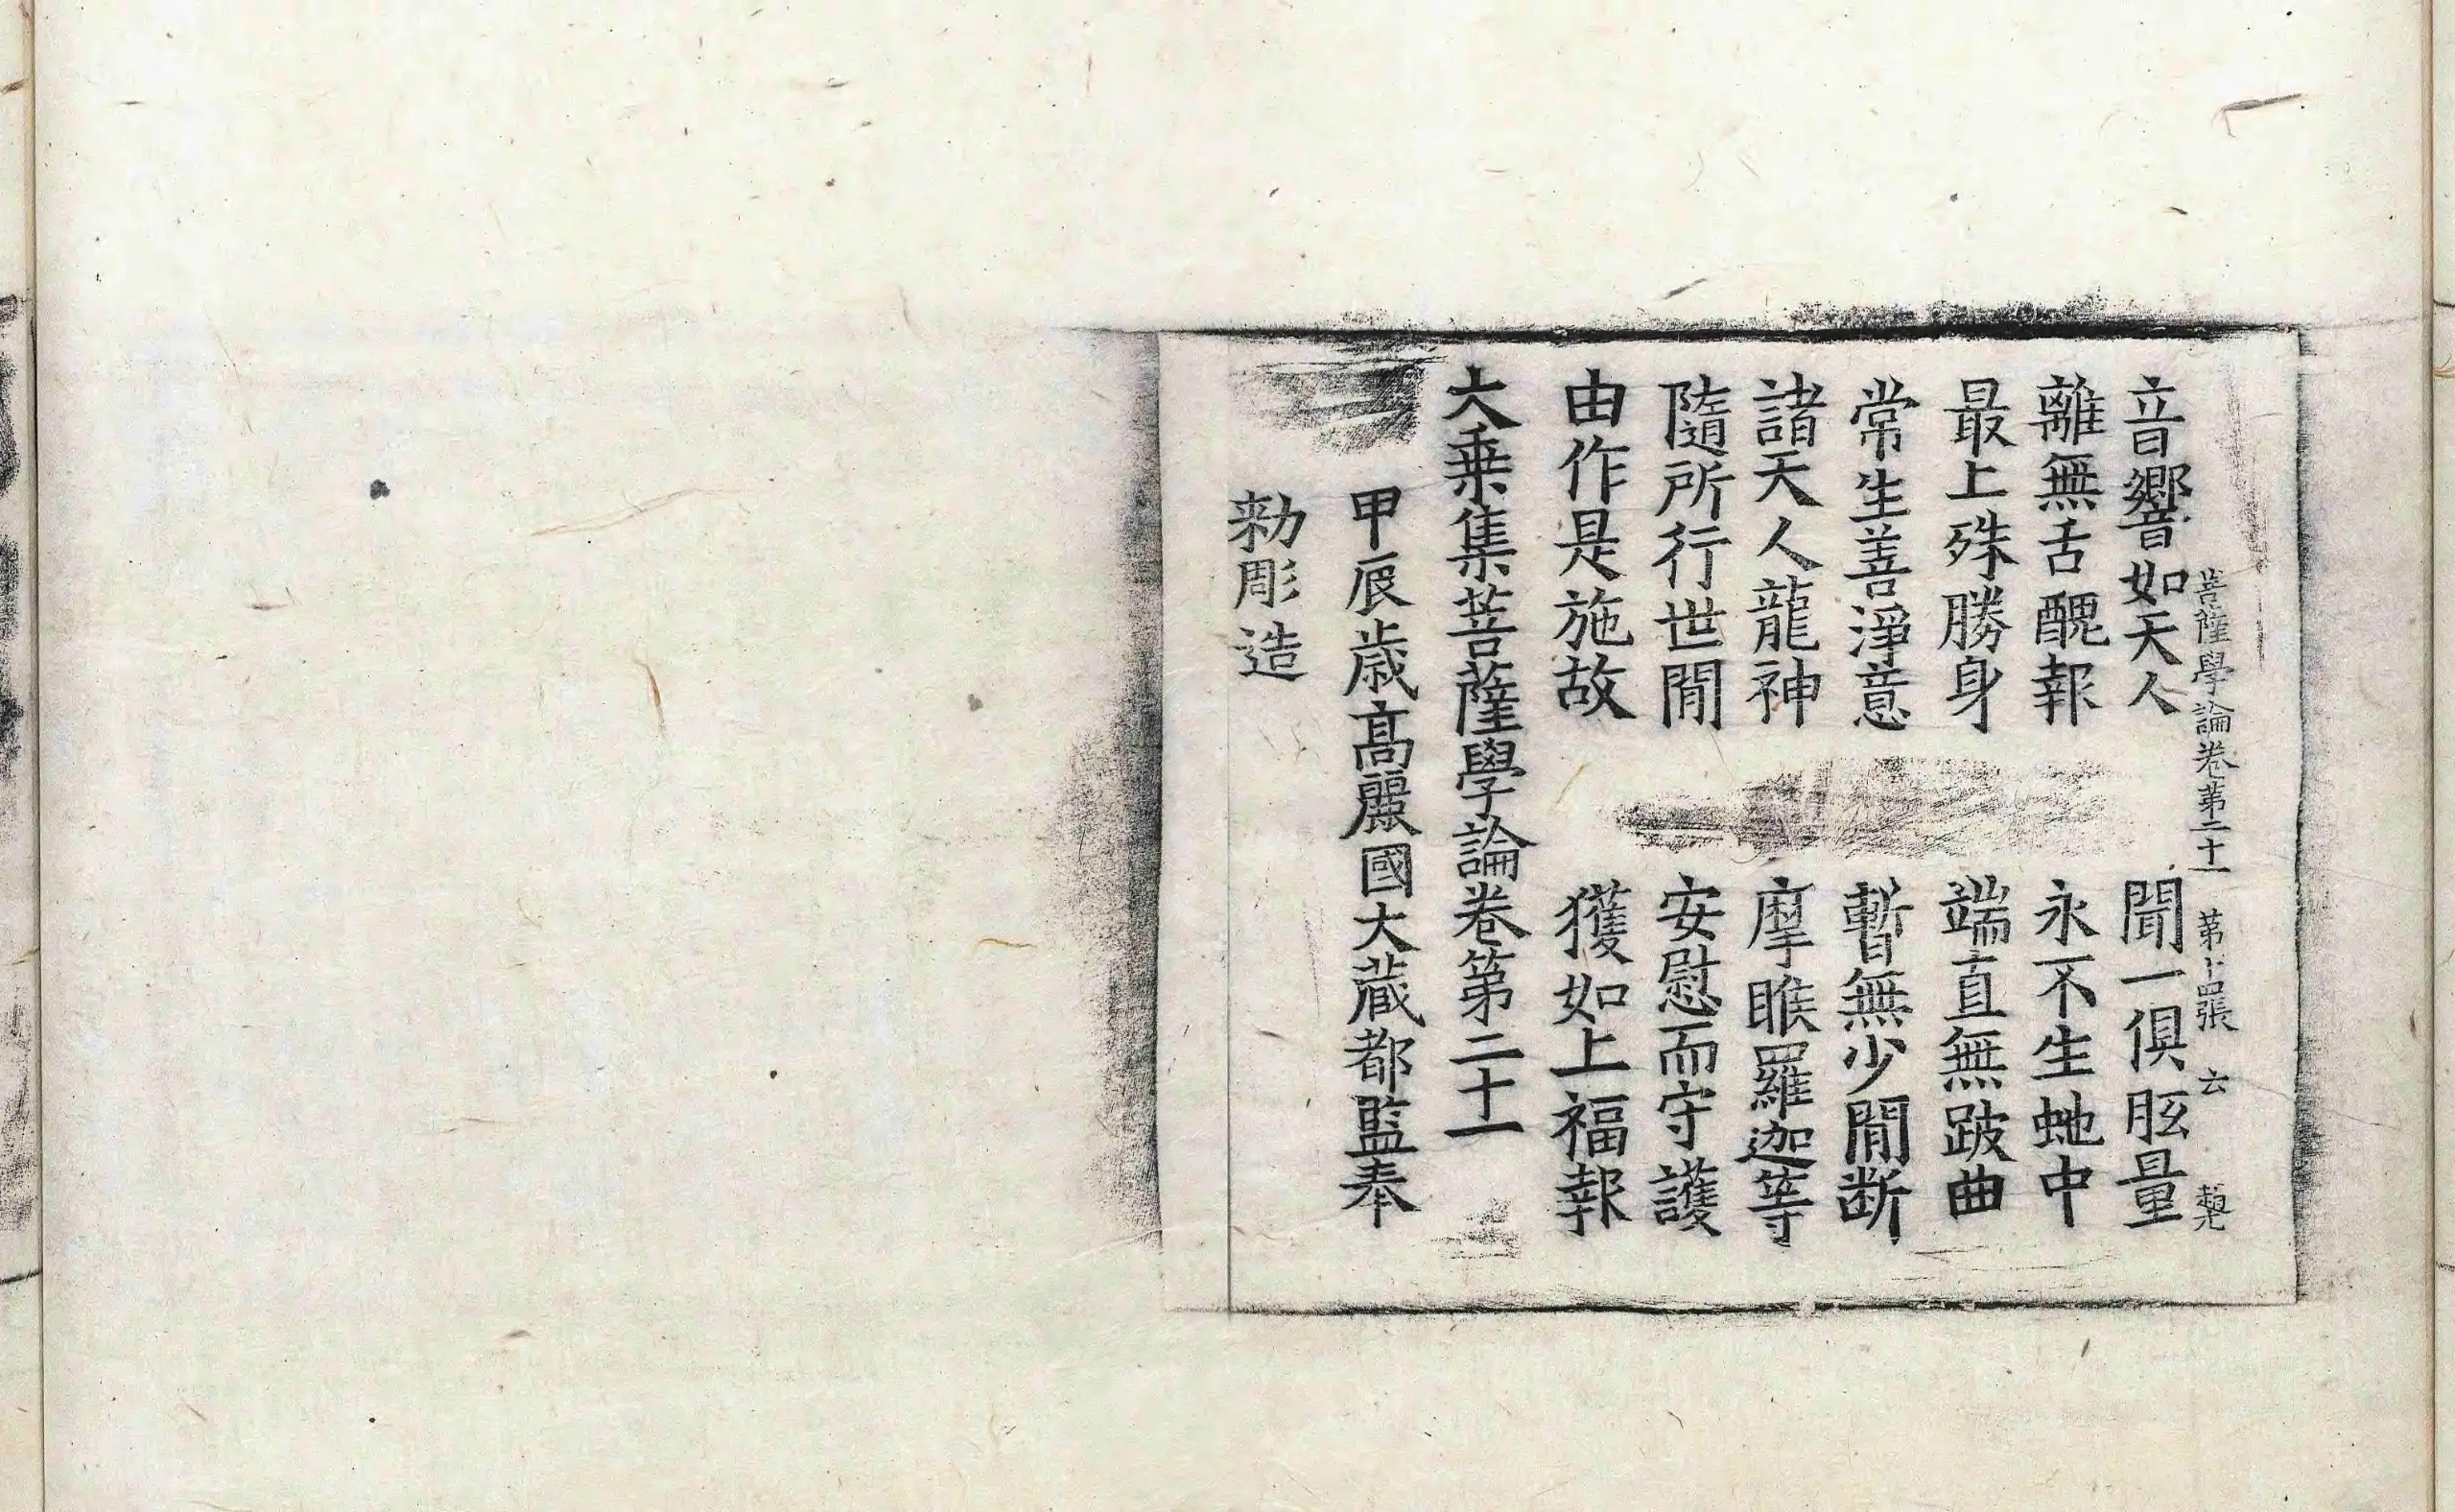 菩薩學論卷第二十一 第十四張 云
音響如天人 聞一俱胝量
離無舌醜報 永不生虵中
最上殊勝身 端直無跛曲
常生善淨意 暫無少間断
諸天人龍神 摩睺羅迦等
隨所行世間 安慰而守護
由作是施故 獲如上福報
大乗集菩薩學論卷第二十一
甲辰歳髙麗國大蔵都監奉
勑彫造